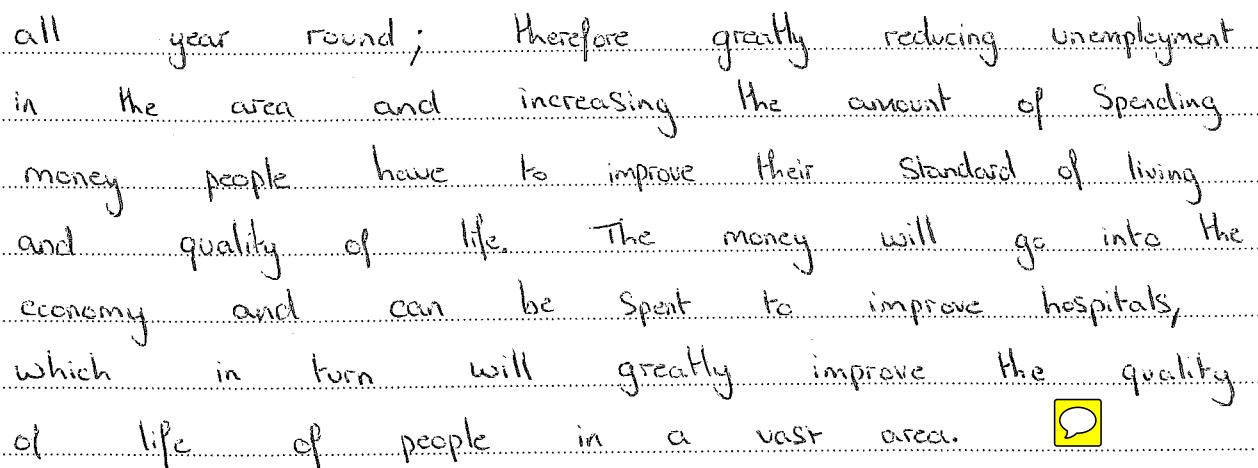 all year round; therefore greatly reducing unemployment
in the area and increasing the amount of Spending
money people have to improve their Standard of living
and quality of life. The money will go into the
economy and can be Spent to improve hospitals,
which in turn will greatly improve the quality
of life of people in a vast area.